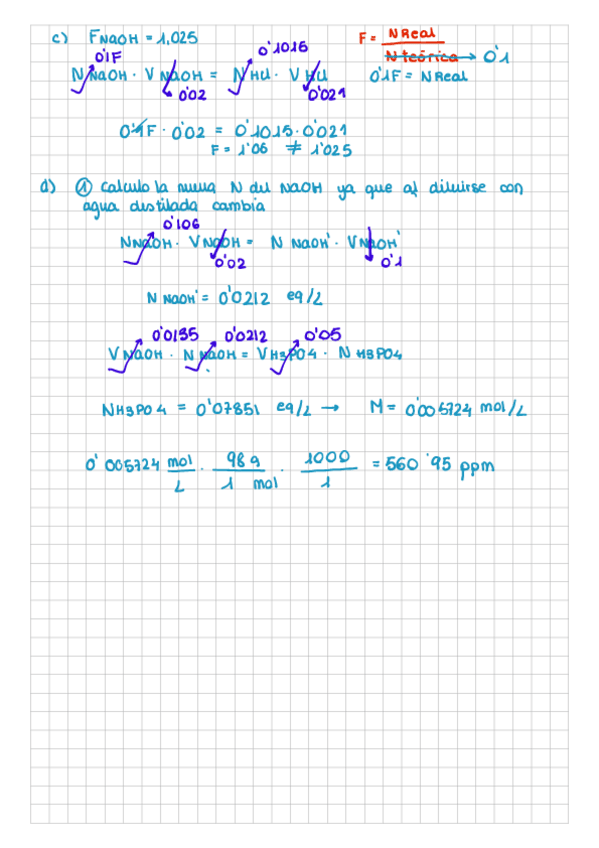 c) FNaOH = 1,025
F = N Real / N teórica → 0'1
0'1F 0'1015
N NaOH · V NaOH = N HCl · V HCl 0'1F = N Real
0'02 0'021
0'1F · 0'02 = 0'1015 · 0'021
F = 1'06 ≠ 1'025
d) ① Calculo la nueva N del NaOH ya que al diluirse con
agua destilada cambia
0'106
N NaOH · V NaOH = N NaOH' · V NaOH'
0'02 0'1
N NaOH' = 0'0212 eq/L
0'0135 0'0212 0'05
V NaOH · N NaOH = V H3PO4 · N H3PO4
NH3PO4 = 0'07851 eq/L → M = 0'005724 mol/L
0'005724 mol/L · 98g/1 mol · 1000/1 = 560'95 ppm